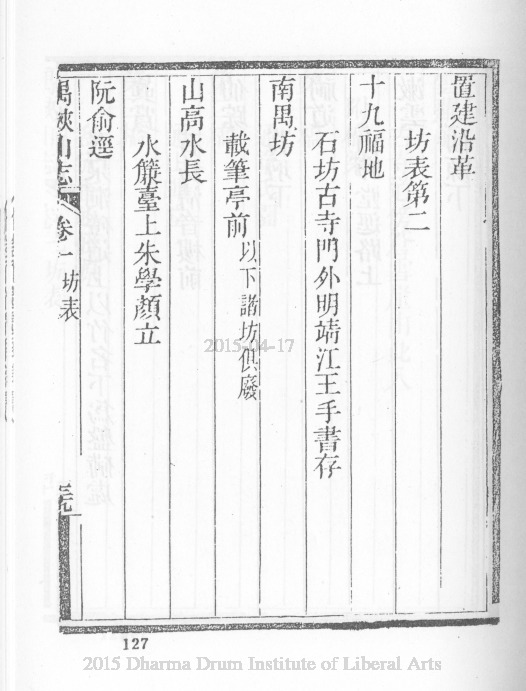 置建沿革
坊表第二
十九福地
石坊古寺門外明靖江王手書存
南禺坊
載筆亭前以下諸坊俱廢
山高水長
水嚴臺上朱學顏立
阮俞逕
禺峽山志 卷一 坊表
2015-04-17
127
2015 Dharma Drum Institute of Liberal Arts